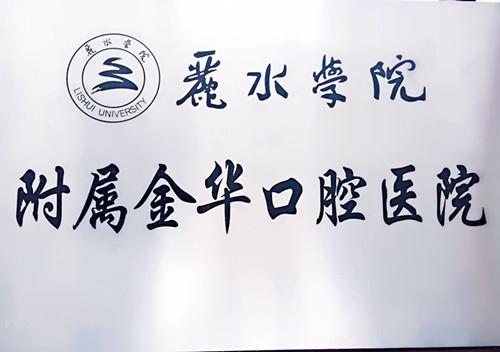 麗水學院
LISHUI UNIVERSITY
麗水學院
附属金华口腔医院